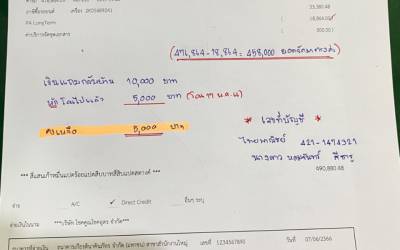 33,380.48
PA LongTerm
18,864.00
300.00
(476,864-18,864 = 458,000 ยอดจัด
เงินแถมกลับบ้าน 10,000 บาท
หัก โอนไปแล้ว 5,000 บาท (โอน 17 พ.ค.)
คงเหลือ 5,000 บาท
* เลขที่บัญชี *
ไทยพาณิชย์ 421-1474321
นางสาว
490,880.48
*** สี่แสนเก้าหมื่นแปดร้อยแปดสิบบาทสี่สิบแปดสตางค์ ***
จ่าย A/C ✓ Direct Credit อื่นๆ ระบุ
จ่ายเงินในนาม ***บริษัท โชคคูณโชคอุดร จำกัด***
ธนาคารเกียรตินาคินภัทร จำกัด (มหาชน) สาขาสำนักงานใหญ่ เลขที่ 1234567890 วันที่ 07/06/2566